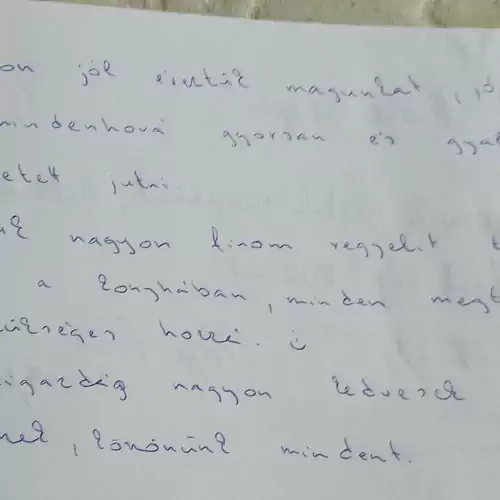 on jól éreztük magunkat, jó
mindenhová gyorsan és gyal
etett jutni.
nagyon finom reggelit
a konyhában, minden megt
szükséges hozzá. :)
igazdáig nagyon kedvesek
nek, könönünk mindent.